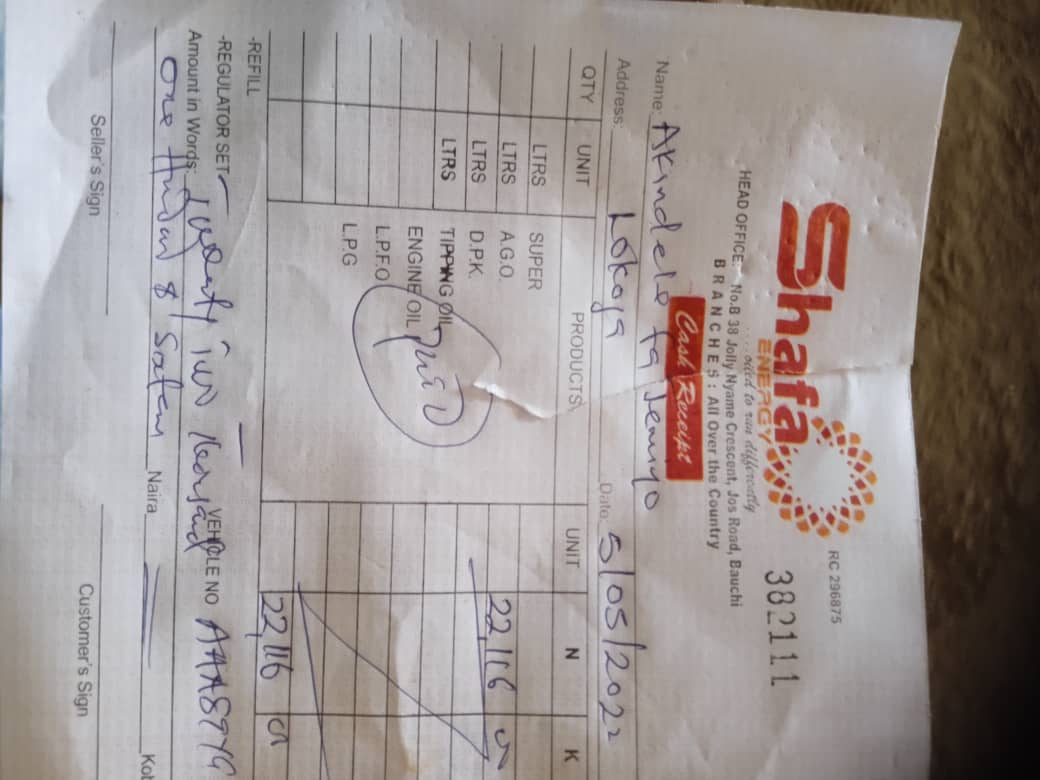 RC 296875
382111
Shafa
ENERGY
...oiled to run differently
HEAD OFFICE: No.B 38 Jolly Nyame Crescent, Jos Road, Bauchi
BRANCHES: All Over the Country
Cash Receipt
Name: Akindele
Address: Lokoja Date: 5/05/2022
QTY UNIT PRODUCTS UNIT N K
LTRS SUPER
LTRS A.G.O. 22,116 00
LTRS D.P.K.
LTRS TIPPING OIL
ENGINE OIL
L.P.F.O
L.P.G
22,116 00
-REFILL
-REGULATOR SET VEHICLE NO
Amount in Words: Twenty two thousand
One Hundred & Sixteen Naira Kob
Seller's Sign Customer's Sign